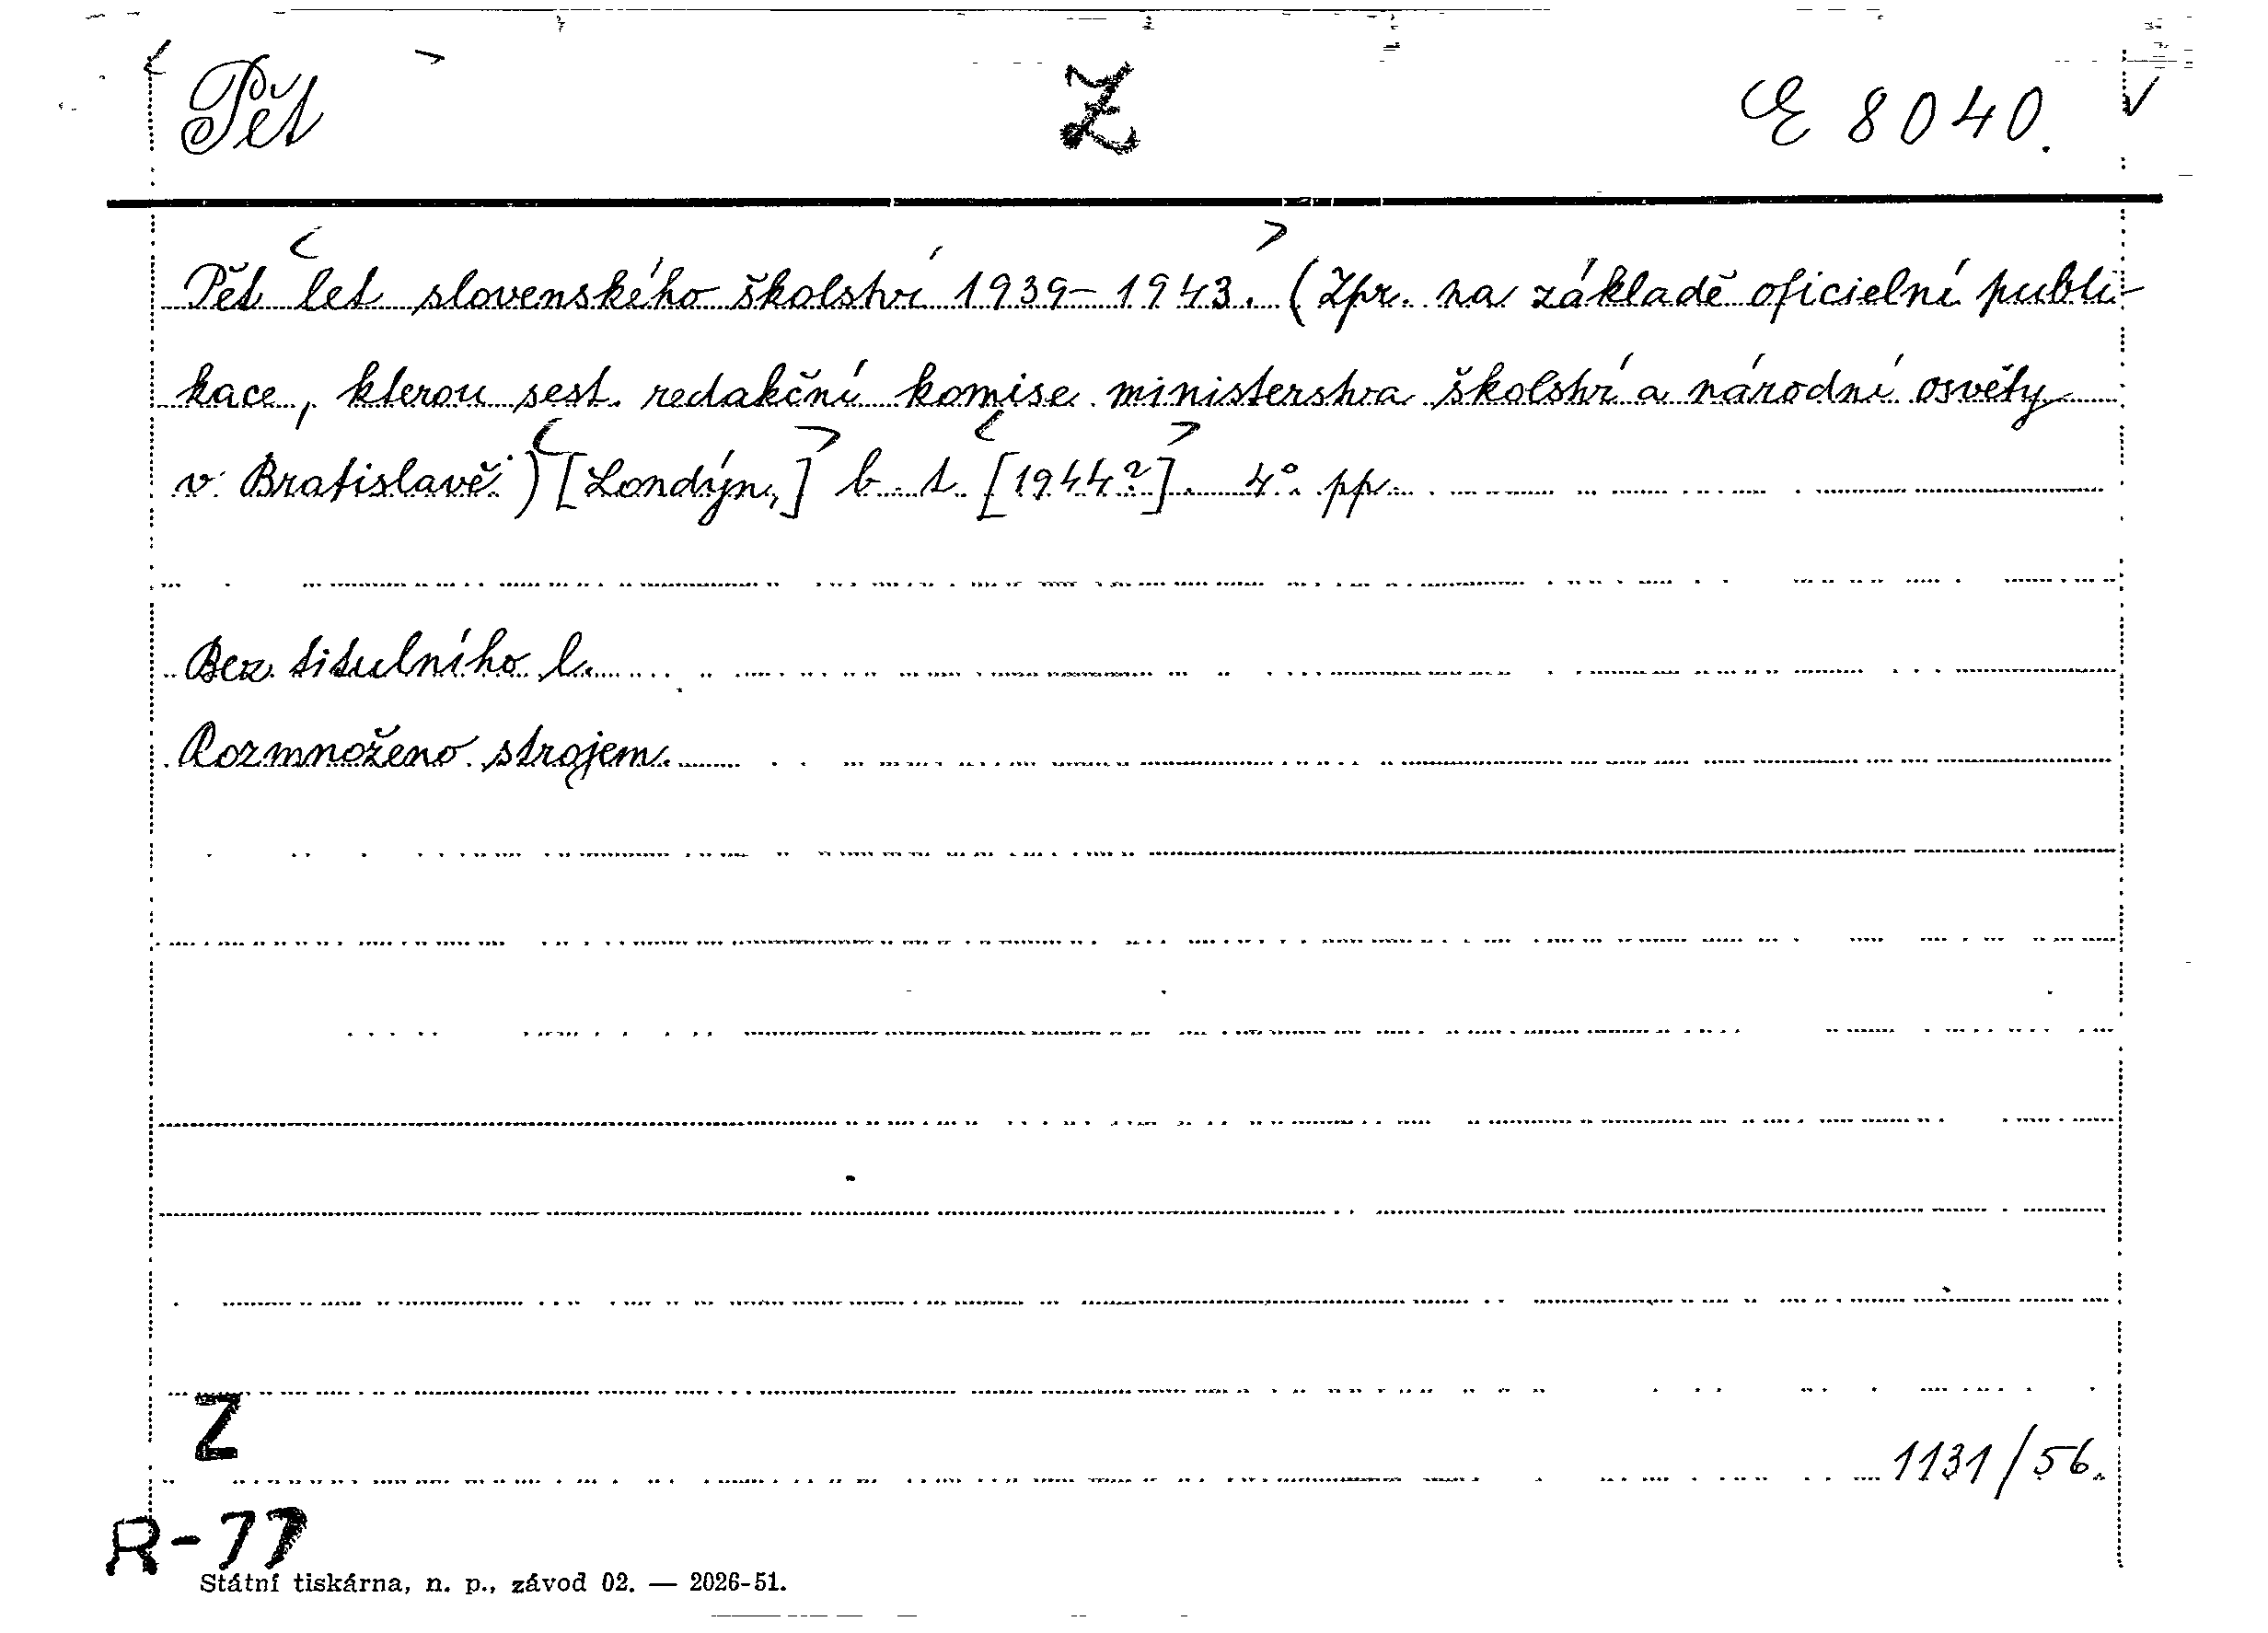 Pět Z E 8040.
Pět let slovenského školství 1939-1943. (Zpr. na základě oficielní publi-
kace, kterou sest. redakční komise ministerstva školství a národní osvěty
v Bratislavě.) [Londýn,] b. t. [1944?]. 4°. pp.
Bez titulního l.
Rozmnoženo strojem.
Z
1131/56.
R-77
Státní tiskárna, n. p., závod 02. — 2026-51.